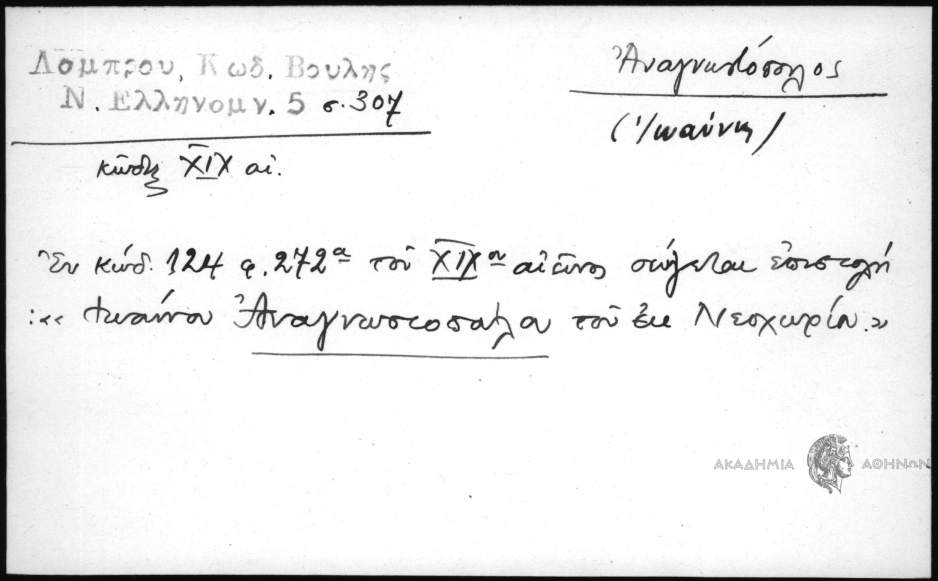 Λαμπρου, Κωδ. Βουλης
Ν. Ελληνομν. 5 σ. 307
Ἀναγνωστόπουλος
(Ἰωάννης)
κώδιξ XIX αἰ.
Ἐν κώδ. 124 φ. 272α τοῦ XIXου αἰῶνος σώζεται ἐπιστολή
:«Ἰωάννου Ἀναγνωστοπούλου τοῦ ἐκ Νεοχωρίου.»
ΑΚΑΔΗΜΙΑ ΑΘΗΝΩΝ